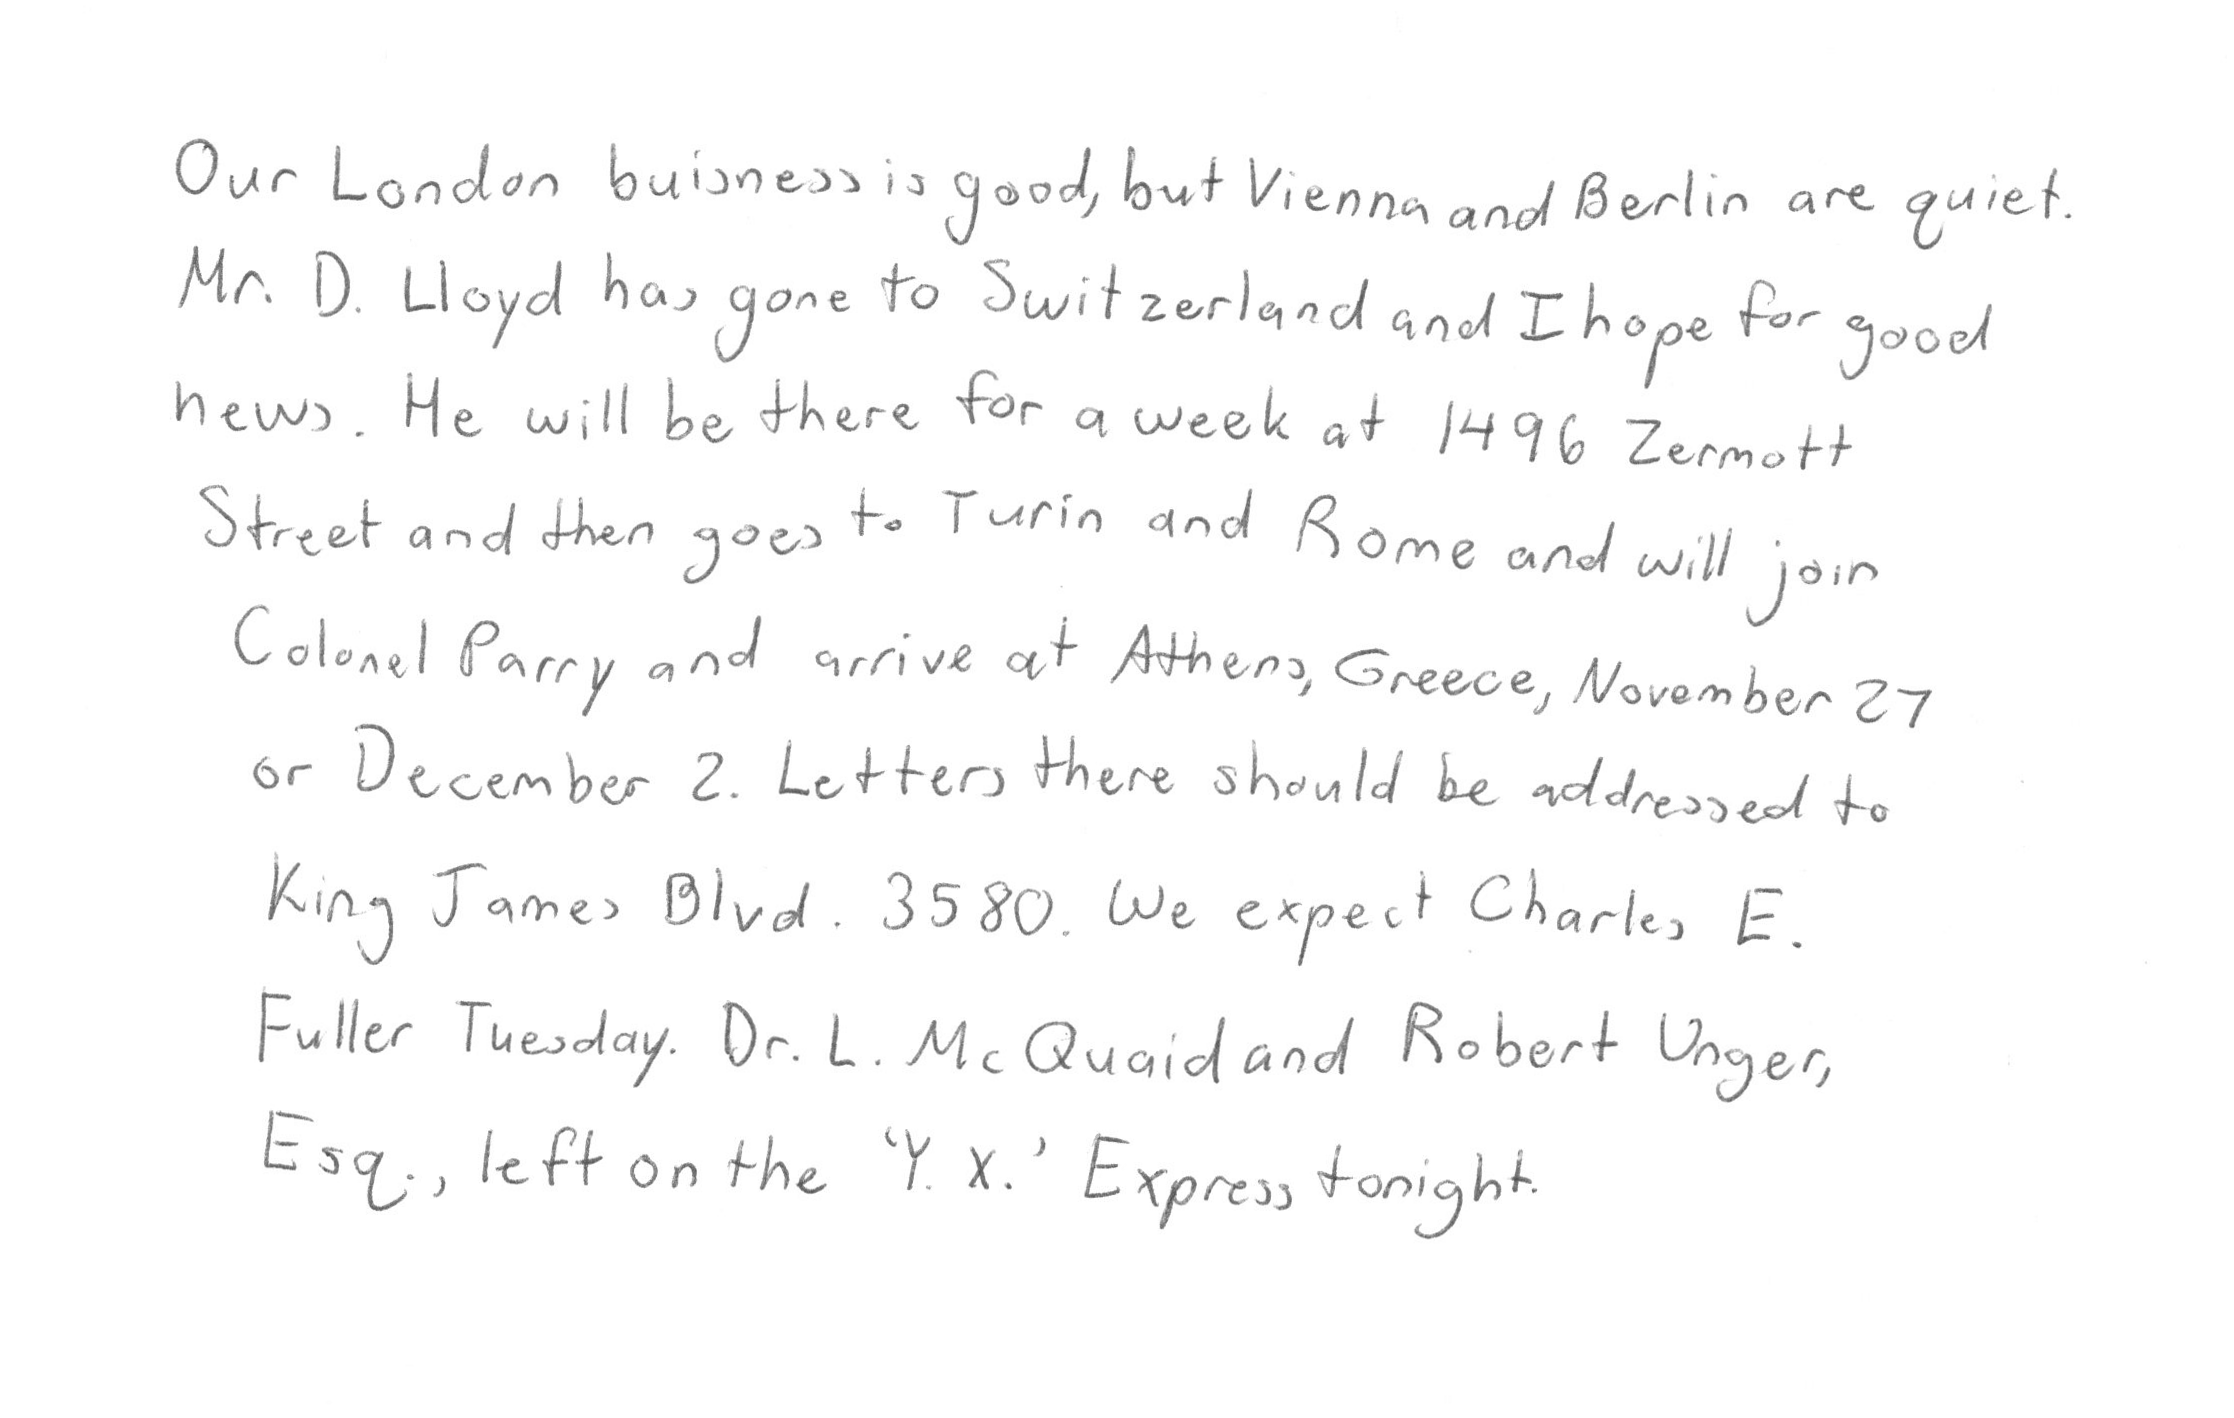 Our London buisness is good, but Vienna and Berlin are quiet.
Mr. D. Lloyd has gone to Switzerland and I hope for good
news. He will be there for a week at 1496 Zermott
Street and then goes to Turin and Rome and will join
Colonel Parry and arrive at Athens, Greece, November 27
or December 2. Letters there should be addressed to
King James Blvd. 3580. We expect Charles E.
Fuller Tuesday. Dr. L. McQuaid and Robert Unger,
Esq., left on the 'Y. X.' Express tonight.